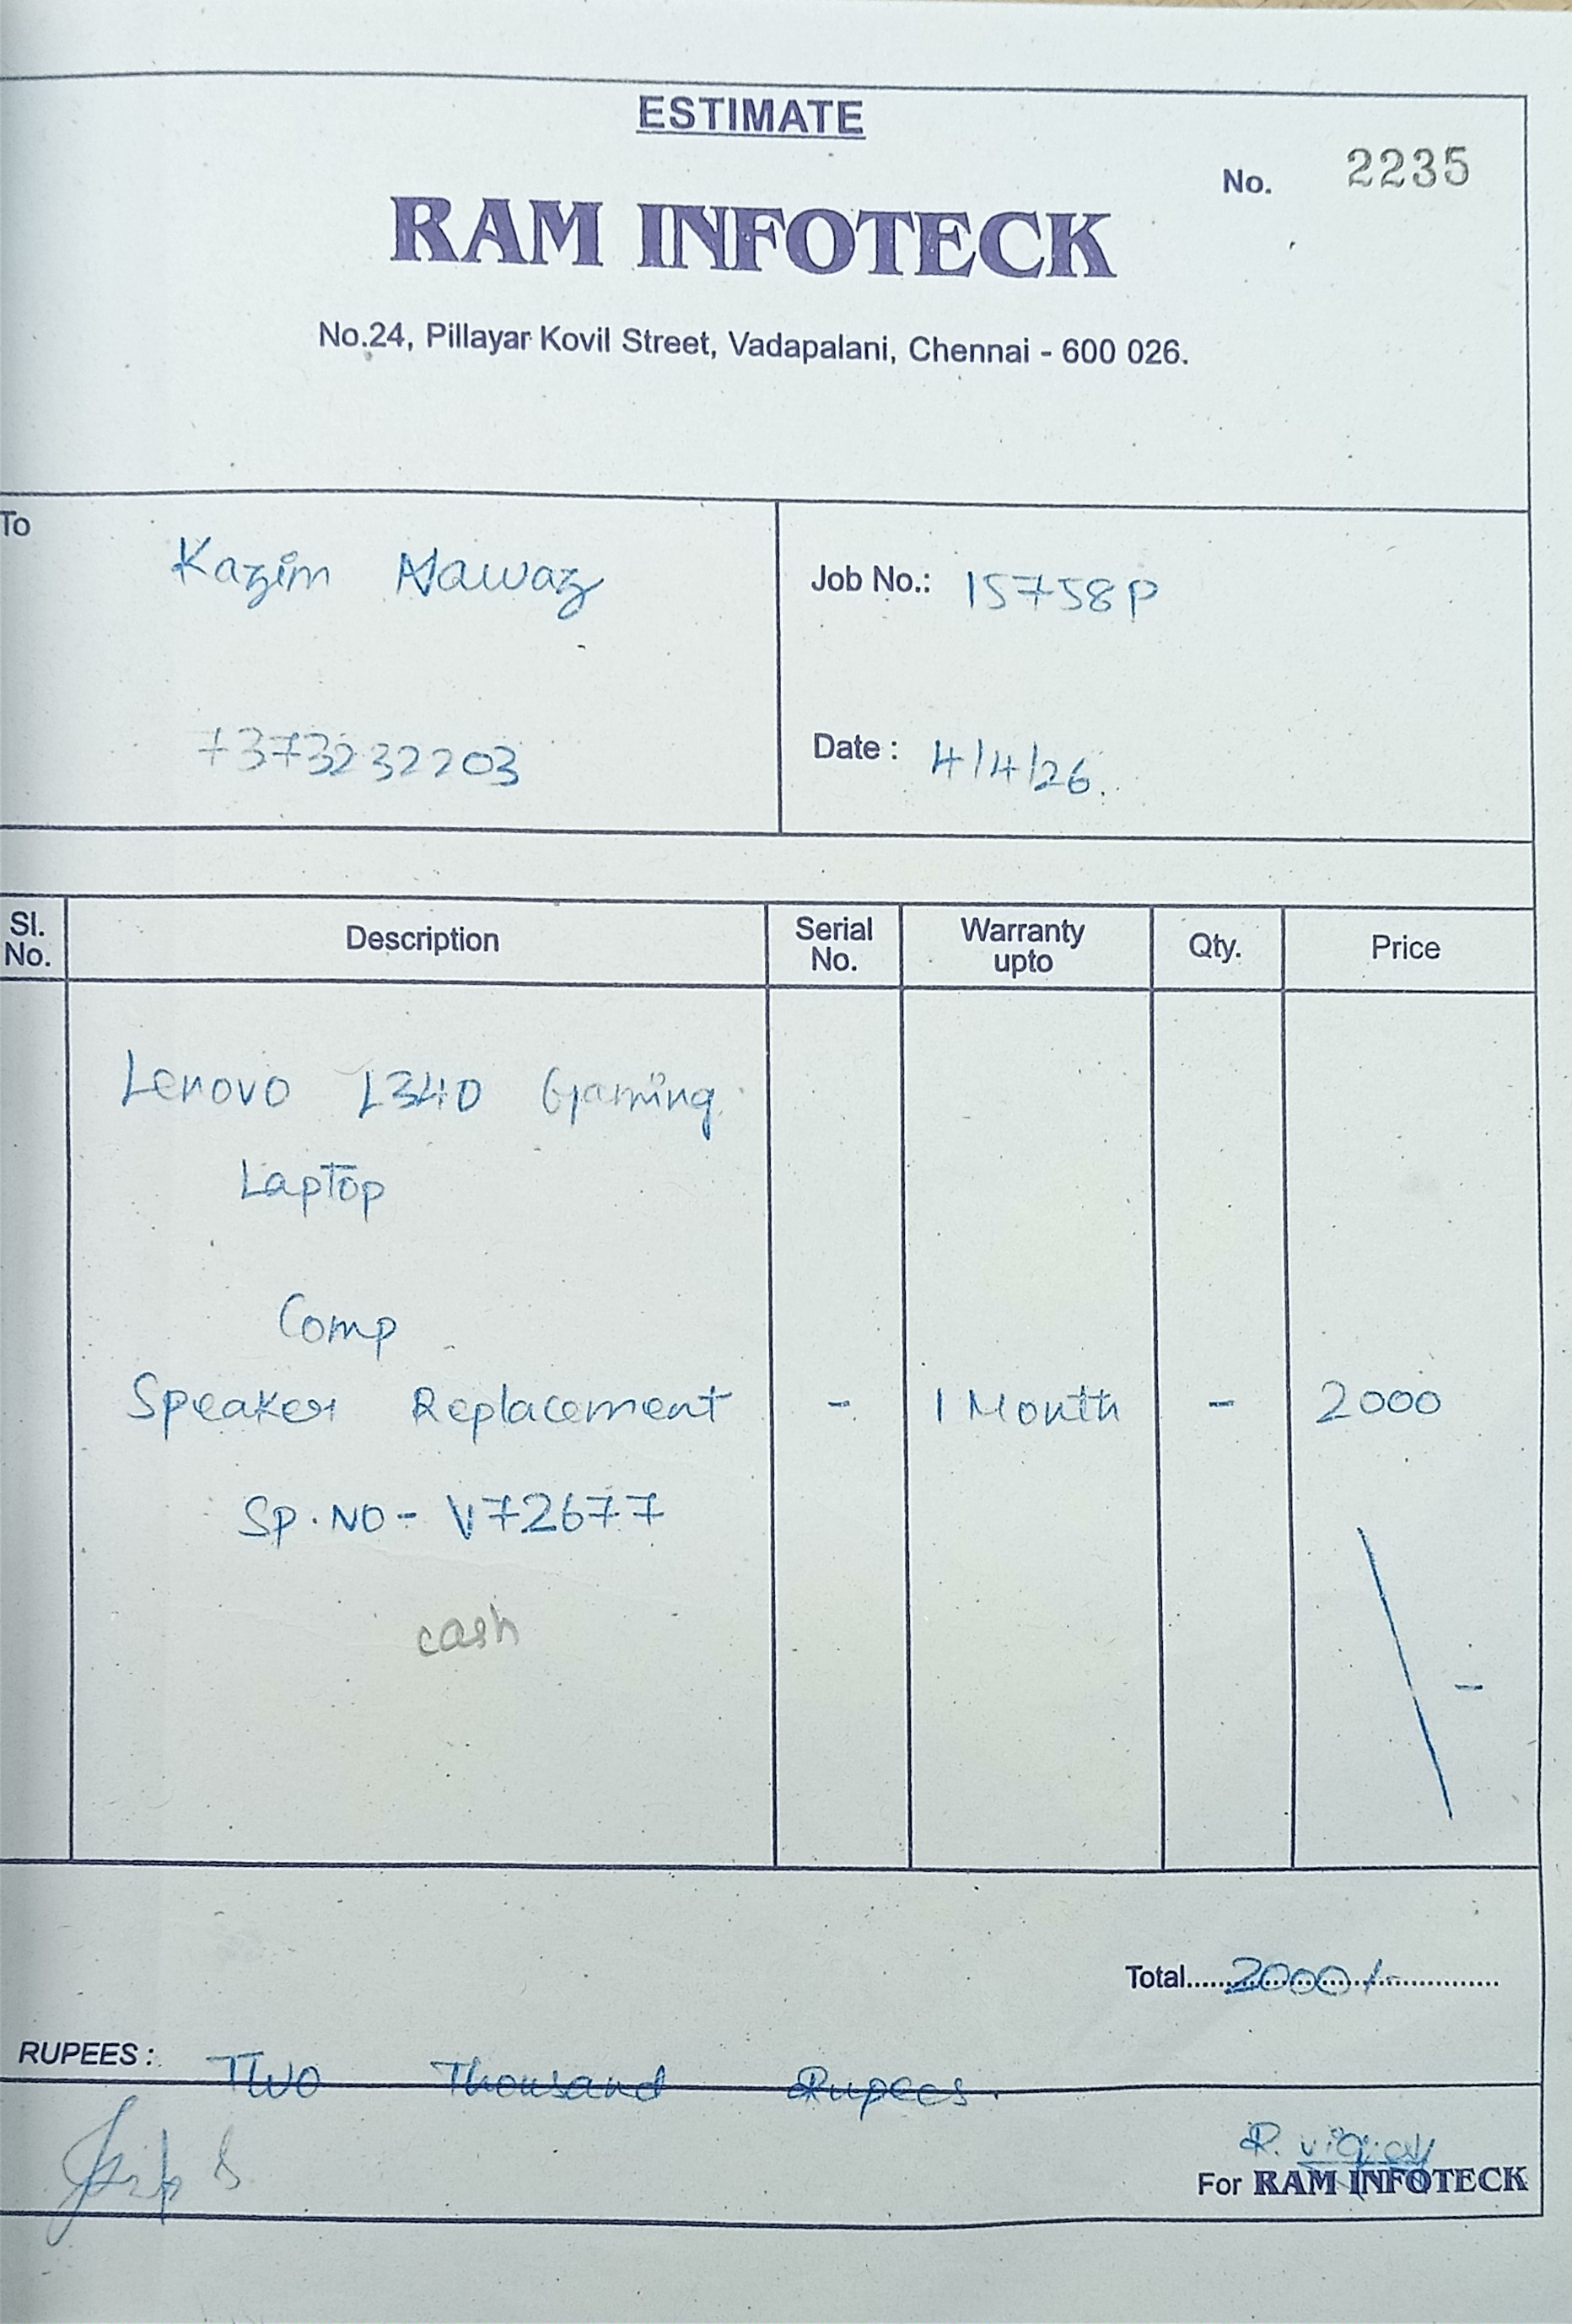 ESTIMATE
No. 2235
RAM INFOTECK
No.24, Pillayar Kovil Street, Vadapalani, Chennai - 600 026.
To
Kazim Nawaz
7373232203
Job No.: 15758P
Date : 4/4/26.
Sl. No. Description Serial No. Warranty upto Qty. Price
Lenovo L340 Gaming
Laptop
Comp
Speaker Replacement - 1 Month - 2000
Sp.NO- V72677
cash
-
Total 2000/-
RUPEES : Two Thousand Rupees.
R. vijay
For RAM INFOTECK